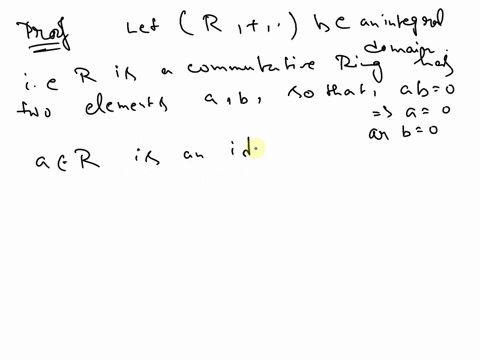 Proof Let (R, +, ·) be an integral
domain
i.e R is a commutative Ring has
two elements a, b, so that, ab=0
=> a=0
or b=0
a ∈ R is an id